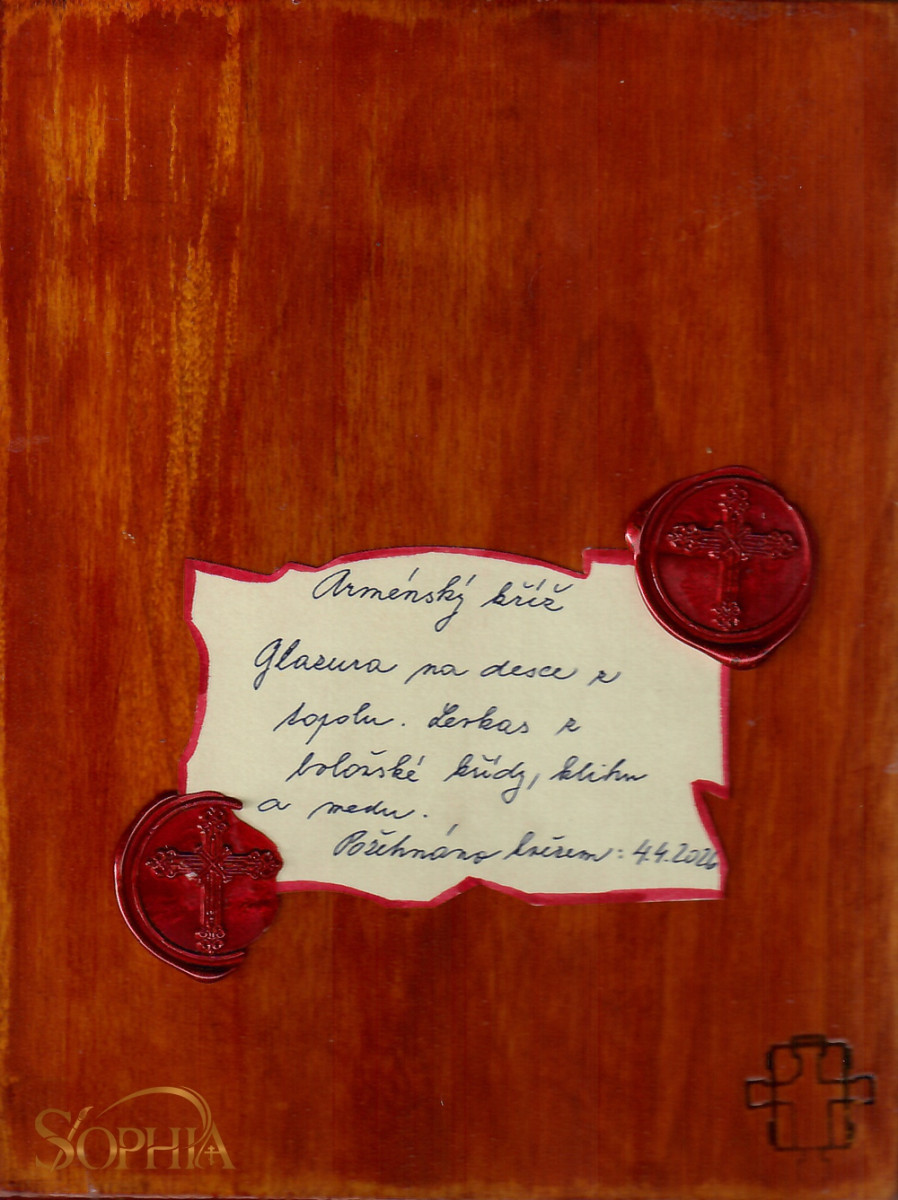 Arménský kříž
Glazura na desce z
topolu. Levkas z
boloňské křídy, klihu
a medu.
Požehnáno knězem: 4.4.2026
SOPHIA